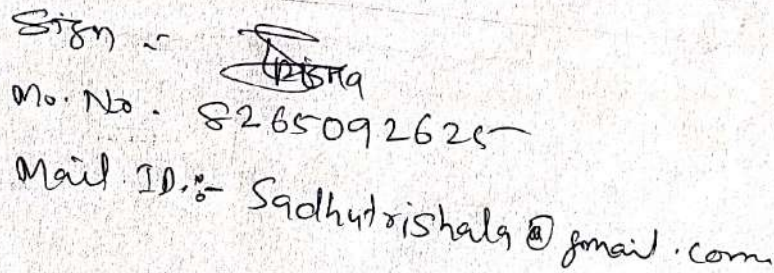 Sign :-
Mo. No. 8265092625
Mail ID.:- Sadhutrishala@gmail.com